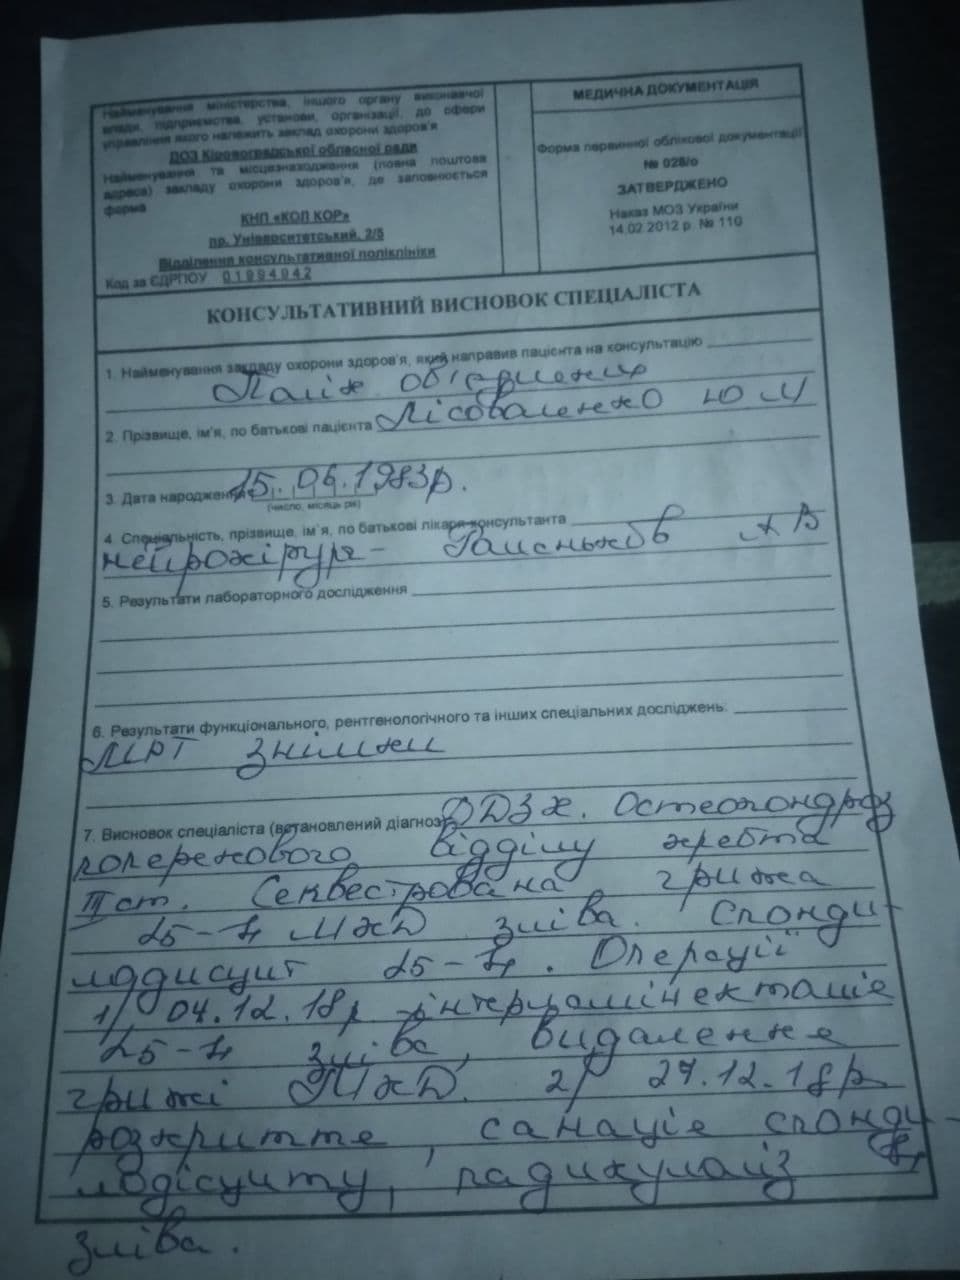 Найменування міністерства, іншого органу виконавчої
влади, підприємства, установи, організації, до сфери
управління якого належить заклад охорони здоров'я
ДОЗ Кіровоградської обласної ради
Найменування та місцезнаходження (повна поштова
адреса) закладу охорони здоров'я, де заповнюється
форма
КНП «КОЛ КОР»
пр. Університетський, 2/5
Відділення консультативної поліклініки
Код за ЄДРПОУ 01994942
МЕДИЧНА ДОКУМЕНТАЦІЯ
Форма первинної облікової документації
№ 028/о
ЗАТВЕРДЖЕНО
Наказ МОЗ України
14.02.2012 р. № 110
КОНСУЛЬТАТИВНИЙ ВИСНОВОК СПЕЦІАЛІСТА
1. Найменування закладу охорони здоров'я, який направив пацієнта на консультацію
2. Прізвище, ім'я, по батькові пацієнта Лісоваленко Ю М
3. Дата народження 15.06.1983р.
(число, місяць рік)
4. Спеціальність, прізвище, ім'я, по батькові лікаря-консультанта
нейрохірург -
5. Результати лабораторного дослідження
6. Результати функціонального, рентгенологічного та інших спеціальних досліджень:
МРТ знімки
7. Висновок спеціаліста (встановлений діагноз) ДДЗХ. Остеохондроз
поперекового відділу хребта
ІІ ст. Секвестрована грижа
МХД зліва. Спонди-
лодисцит. Операції
1/ 04.12.18р інтерламінектомія
зліва, видалення
грижі МХД. 2/ 27.12.18р
розкриття, санація спонди-
лодісциту, радикуліз
зліва.